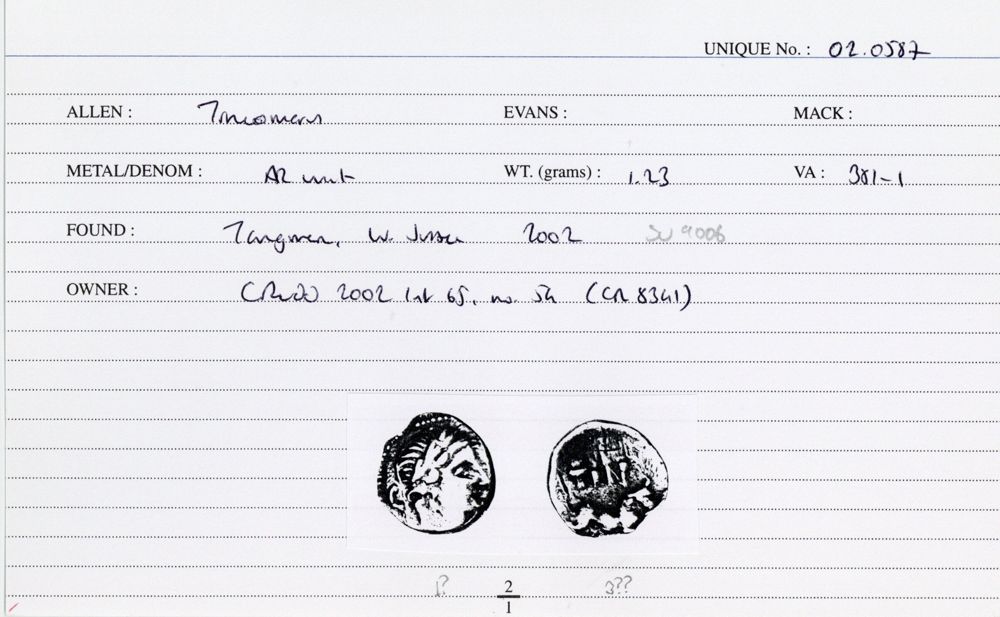 UNIQUE No. : 02.0587
ALLEN : Tincomarus EVANS : MACK :
METAL/DENOM : AR unit WT. (grams) : 1.23 VA : 381-1
FOUND : Tangmere, W. Sussex 2002 SU 9006
OWNER : 2002 list 65, no. 54 (CR 8341)
1? 2 3??
1